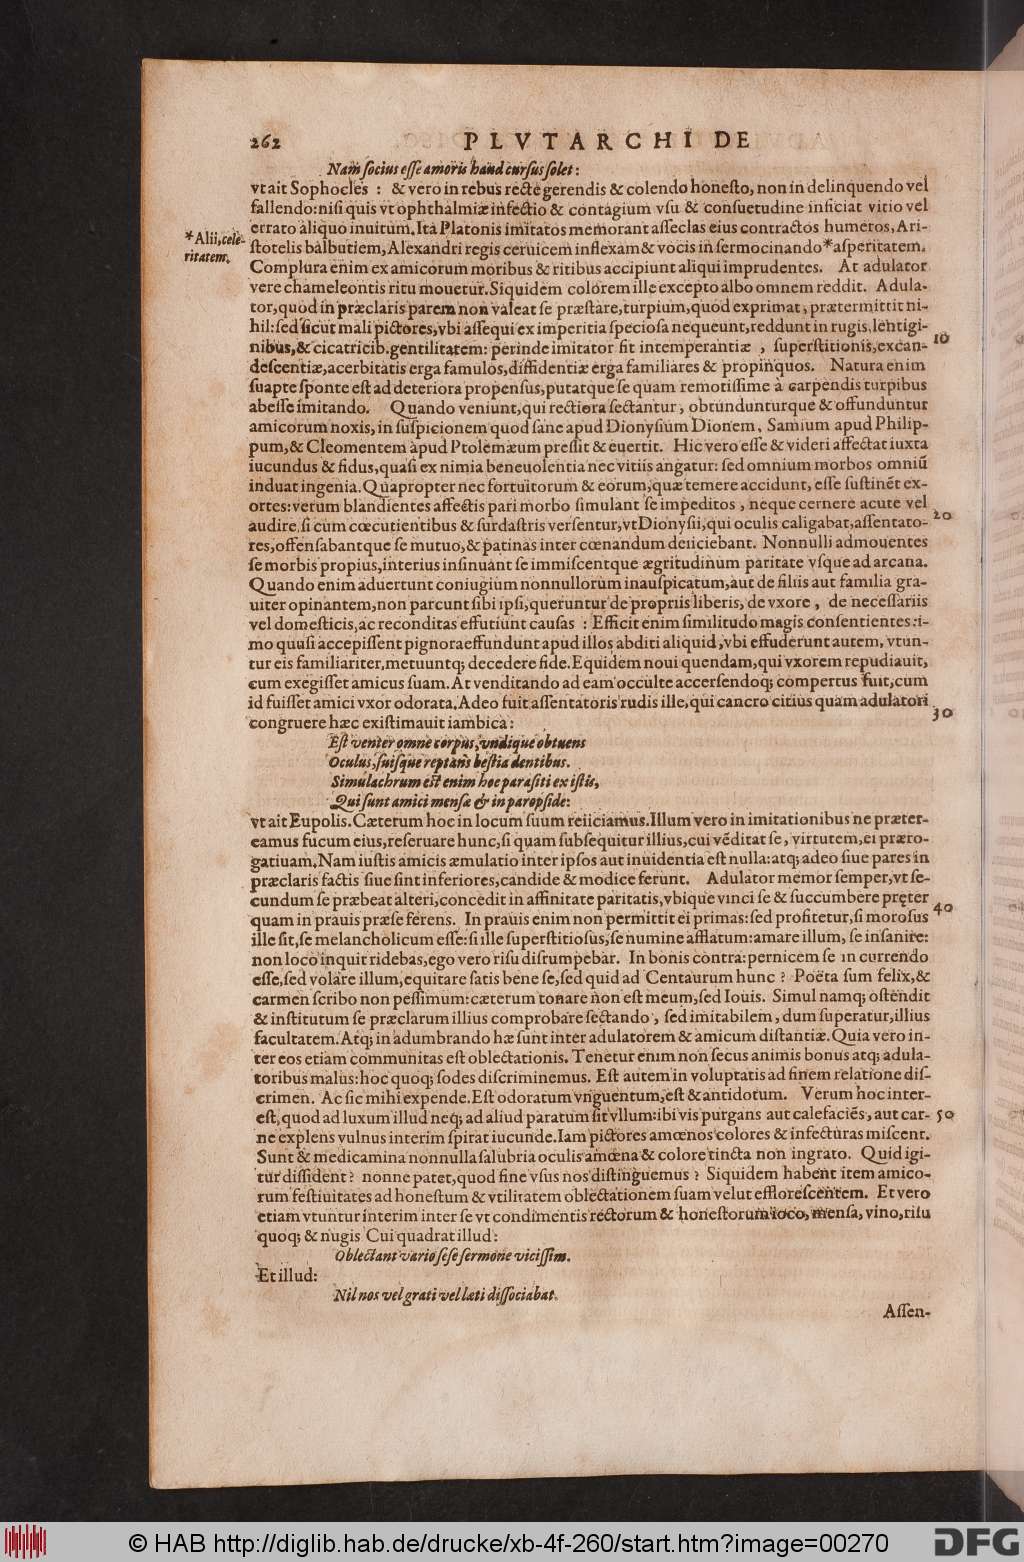 262 PLVTARCHI DE
Nam ſocius eſſe amoris haud curſus ſolet:
vt ait Sophocles : & vero in rebus recte gerendis & colendo honeſto, non in delinquendo vel
fallendo: niſi quis vt ophthalmiæ infectio & contagium vſu & conſuetudine inficiat vitio vel
errato aliquo inuitum. Ita Platonis imitatos memorant aſſeclas eius contractos humeros, Ari-
*Alii, cele-
ritatem.
ſtotelis balbutiem, Alexandri regis ceruicem inflexam & vocis in ſermocinando*aſperitatem.
Complura enim ex amicorum moribus & ritibus accipiunt aliqui imprudentes. At adulator
vere chameleontis ritu mouetur. Siquidem colorem ille excepto albo omnem reddit. Adula-
tor, quod in præclaris parem non valeat ſe præſtare, turpium, quod exprimat, prætermittit ni-
hil: ſed ſicut mali pictores, vbi aſſequi ex imperitia ſpecioſa nequeunt, reddunt in rugis, lentigi-
10
nibus, & cicatricib. gentilitatem: perinde imitator fit intemperantiæ , ſuperſtitionis, excan-
deſcentiæ, acerbitatis erga famulos, diffidentiæ erga familiares & propinquos. Natura enim
ſuapte ſponte eſt ad deteriora propenſus, putatque ſe quam remotiſſime à carpendis turpibus
abeſſe imitando. Quando veniunt, qui rectiora ſectantur, obtundunturque & offunduntur
amicorum noxis, in ſuſpicionem quod ſane apud Dionyſium Dionem, Samium apud Philip-
pum, & Cleomentem apud Ptolemæum preſſit & euertit. Hic vero eſſe & videri affectat iuxta
iucundus & fidus, quaſi ex nimia beneuolentia nec vitiis angatur: ſed omnium morbos omniū
induat ingenia. Quapropter nec fortuitorum & eorum, quæ temere accidunt, eſſe ſuſtinēt ex-
ortes: verum blandientes affectis pari morbo ſimulant ſe impeditos , neque cernere acute vel
20
audire, ſi cum cœcutientibus & ſurdaſtris verſentur, vt Dionyſii, qui oculis caligabat, aſſentato-
res, offenſabantque ſe mutuo, & patinas inter cœnandum deiiciebant. Nonnulli admouentes
ſe morbis propius, interius inſinuant ſe immiſcentque ægritudinum paritate vſque ad arcana.
Quando enim aduertunt coniugium nonnullorum inauſpicatum, aut de filiis aut familia gra-
uiter opinantem, non parcunt ſibi ipſi, queruntur de propriis liberis, de vxore , de neceſſariis
vel domeſticis, ac reconditas effutiunt cauſas : Efficit enim ſimilitudo magis conſentientes: i-
mo quaſi accepiſſent pignora effundunt apud illos abditi aliquid, vbi effuderunt autem, vtun-
tur eis familiariter, metuuntq; decedere fide. Equidem noui quendam, qui vxorem repudiauit,
cum exegiſſet amicus ſuam. At venditando ad eam occulte accerſendoq; compertus fuit, cum
id fuiſſet amici vxor odorata. Adeo fuit aſſentatoris rudis ille, qui cancro citius quam adulatori
30
congruere hæc exiſtimauit iambica:
Eſt venter omne corpus, vndique obtuens
Oculus, ſuiſque reptans beſtia dentibus.
Simulachrum est enim hoc paraſiti ex iſtis,
Qui ſunt amici menſæ & in paropſide:
vt ait Eupolis. Cæterum hoc in locum ſuum reiiciamus. Illum vero in imitationibus ne præter-
eamus fucum eius, reſeruare hunc, ſi quam ſubſequitur illius, cui vēditat ſe, virtutem, ei præro-
gatiuam. Nam iuſtis amicis æmulatio inter ipſos aut inuidentia eſt nulla: atq; adeo ſiue pares in
præclaris factis ſiue ſint inferiores, candide & modice ferunt. Adulator memor ſemper, vt ſe-
cundum ſe præbeat alteri, concedit in affinitate paritatis, vbique vinci ſe & ſuccumbere pręter
40
quam in prauis præ ſe ferens. In prauis enim non permittit ei primas: ſed profitetur, ſi moroſus
ille ſit, ſe melancholicum eſſe: ſi ille ſuperſtitioſus, ſe numine afflatum: amare illum, ſe inſanire:
non loco inquit ridebas, ego vero riſu diſrumpebar. In bonis contra: pernicem ſe in currendo
eſſe, ſed volare illum, equitare ſatis bene ſe, ſed quid ad Centaurum hunc ? Poëta ſum felix, &
carmen ſcribo non peſſimum: cæterum tonare non eſt meum, ſed Iouis. Simul namq; oſtendit
& inſtitutum ſe præclarum illius comprobare ſectando , ſed imitabilem, dum ſuperatur, illius
facultatem. Atq; in adumbrando hæ ſunt inter adulatorem & amicum diſtantiæ. Quia vero in-
ter eos etiam communitas eſt oblectationis. Tenetur enim non ſecus animis bonus atq; adula-
toribus malus: hoc quoq; ſodes diſcriminemus. Eſt autem in voluptatis ad finem relatione diſ-
crimen. Ac ſic mihi expende. Eſt odoratum vnguentum, eſt & antidotum. Verum hoc inter-
eſt, quod ad luxum illud neq; ad aliud paratum ſit vllum: ibi vis purgans aut calefaciēs, aut car-
50
ne explens vulnus interim ſpirat iucunde. Iam pictores amœnos colores & infecturas miſcent.
Sunt & medicamina nonnulla ſalubria oculis amœna & colore tincta non ingrato. Quid igi-
tur diſſident ? nonne patet, quod fine vſus nos diſtinguemus ? Siquidem habent item amico-
rum feſtiuitates ad honeſtum & vtilitatem oblectationem ſuam velut effloreſcentem. Et vero
etiam vtuntur interim inter ſe vt condimentis rectorum & honeſtorum ioco, menſa, vino, riſu
quoq; & nugis Cui quadrat illud:
Oblectant vario ſeſe ſermone viciſſim.
Et illud:
Nil nos vel grati vel læti diſſociabat.
Aſſen-
© HAB http://diglib.hab.de/drucke/xb-4f-260/start.htm?image=00270 DFG